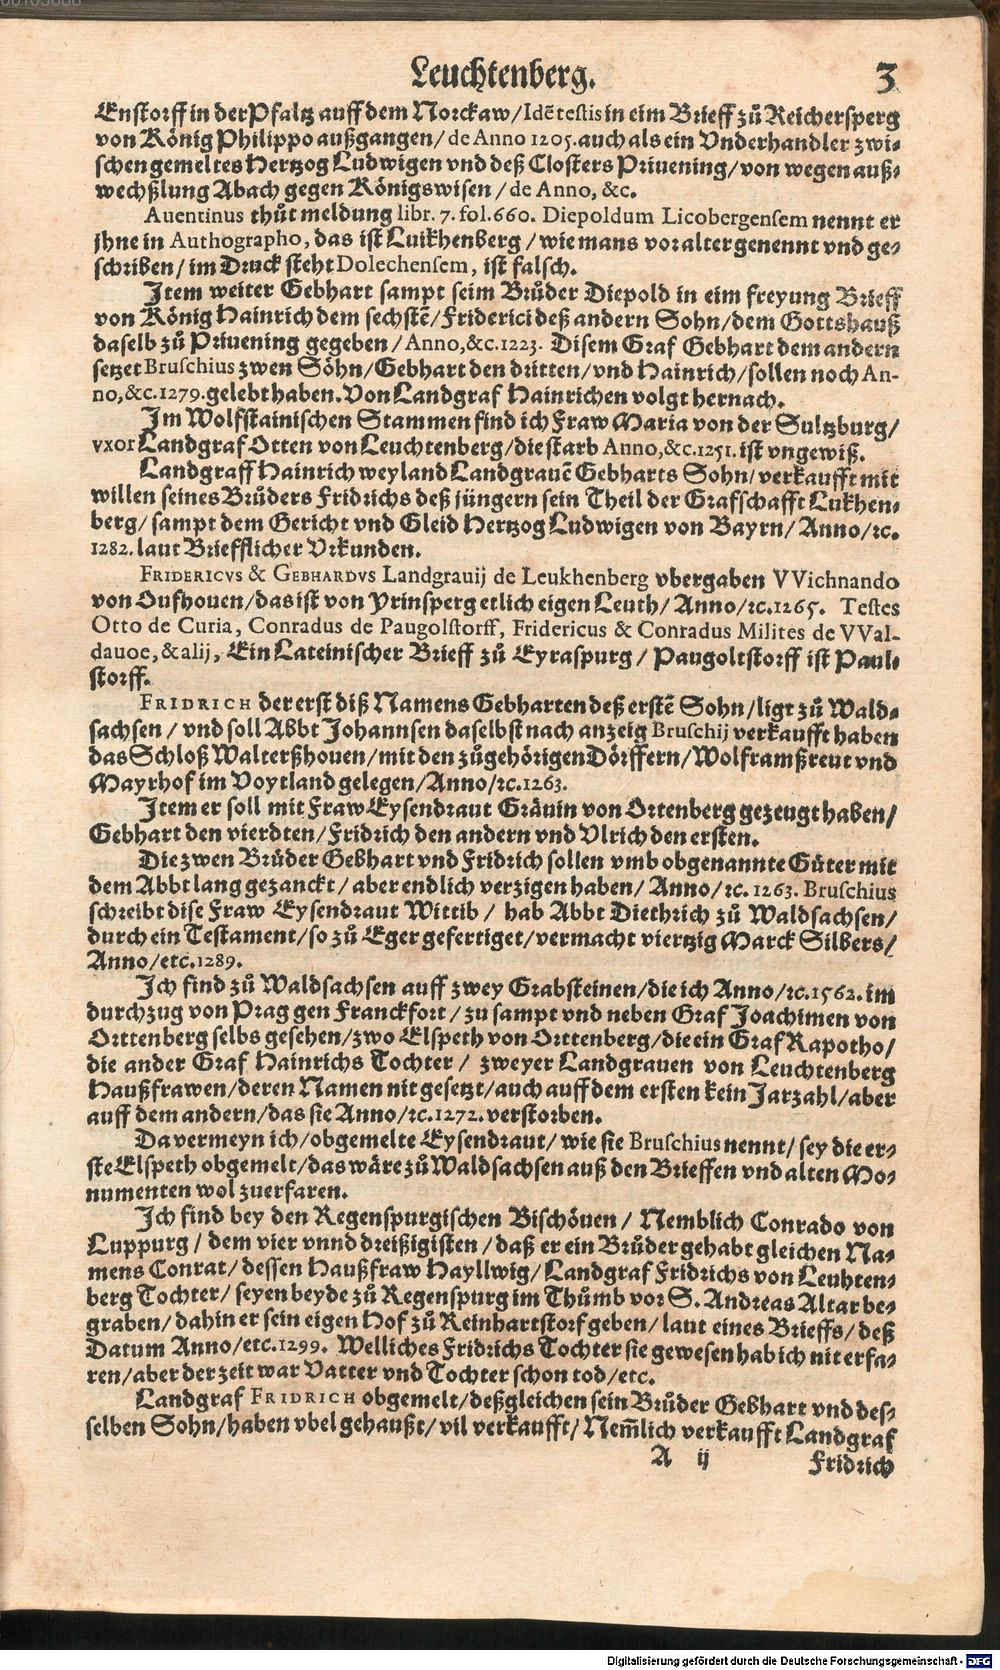 Leuchtenberg. 3
Enstorff in der Pfaltz auff dem Norckaw / Idē testis in eim Brieff zů Reichersperg
von König Philippo außgangen / de Anno 1205. auch als ein Vnderhandler zwi-
schen gemeltes Hertzog Ludwigen vnd deß Closters Priuening / von wegen auß-
wechßlung Abach gegen Königswisen / de Anno, &c.
Auentinus thůt meldung libr. 7. fol. 660. Diepoldum Licobergensem nennt er
jhne in Authographo, das ist Luikhenberg / wie mans vor alter genennt vnd ge-
schriben / im Druck steht Dolechensem, ist falsch.
Jtem weiter Gebhart sampt seim Brůder Diepold in eim freyung Brieff
von König Hainrich dem sechstē / Friderici deß andern Sohn / dem Gottshauß
daselb zů Priuening gegeben / Anno, &c. 1223. Disem Graf Gebhart dem andern
setzet Bruschius zwen Söhn / Gebhart den dritten / vnd Hainrich / sollen noch An-
no, &c. 1279. gelebt haben. Von Landgraf Hainrichen volgt hernach.
Jm Wolfstainischen Stammen find ich Fraw Maria von der Sultzburg /
vxor Landgraf Otten von Leuchtenberg / die starb Anno, &c. 1251. ist vngewiß.
Landgraff Hainrich weyland Landgrauē Gebharts Sohn / verkaufft mit
willen seines Brůders Fridrichs deß jüngern sein Theil der Grafschafft Lukhen-
berg / sampt dem Gericht vnd Gleid Hertzog Ludwigen von Bayrn / Anno / ꝛc.
1282. laut Briefflicher Vrkunden.
FRIDERICVS & GEBHARDVS Landgrauij de Leukhenberg vbergaben VVichnando
von Oufhouen / das ist von Yrinsperg etlich eigen Leuth / Anno / ꝛc. 1265. Testes
Otto de Curia, Conradus de Paugolstorff, Fridericus & Conradus Milites de VVal-
dauoe, & alij, Ein Lateinischer Brieff zů Eyraspurg / Paugoltstorff ist Paul-
storff.
FRIDRICH der erst diß Namens Gebharten deß erstē Sohn / ligt zů Wald-
sachsen / vnd soll Abbt Johannsen daselbst nach anzeig Bruschij verkaufft haben
das Schloß Walterßhouen / mit den zůgehörigen Dörffern / Wolframßreut vnd
Mayrhof im Voytland gelegen / Anno / ꝛc. 1263.
Jtem er soll mit Fraw Eysendraut Grävin von Ortenberg gezeugt haben /
Gebhart den vierdten / Fridrich den andern vnd Vlrich den ersten.
Die zwen Brůder Gebhart vnd Fridrich sollen vmb obgenannte Güter mit
dem Abbt lang gezanckt / aber endlich verzigen haben / Anno / ꝛc. 1263. Bruschius
schreibt dise Fraw Eysendraut Wittib / hab Abbt Diethrich zů Waldsachsen /
durch ein Testament / so zů Eger gefertiget / vermacht viertzig Marck Silbers /
Anno / etc. 1289.
Jch find zů Waldsachsen auff zwey Grabsteinen / die ich Anno / ꝛc. 1562. im
durchzug von Prag gen Franckfort / zu sampt vnd neben Graf Joachimen von
Orttenberg selbs gesehen / zwo Elspeth von Orttenberg / die ein Graf Rapotho /
die ander Graf Hainrichs Tochter / zweyer Landgrauen von Leuchtenberg
Haußfrawen / deren Namen nit gesetzt / auch auff dem ersten kein Jarzahl / aber
auff dem andern / das sie Anno / ꝛc. 1272. verstorben.
Da vermeyn ich / obgemelte Eysendraut / wie sie Bruschius nennt / sey die er-
ste Elspeth obgemelt / das wäre zů Waldsachsen auß den Brieffen vnd alten Mo-
numenten wol zuerfaren.
Jch find bey den Regenspurgischen Bischöuen / Nemblich Conrado von
Luppurg / dem vier vnnd dreißigisten / daß er ein Brůder gehabt gleichen Na-
mens Conrat / dessen Haußfraw Hayllwig / Landgraf Fridrichs von Leuhten-
berg Tochter / seyen beyde zů Regenspurg im Thůmb vor S. Andreas Altar be-
graben / dahin er sein eigen Hof zů Reinhartstorf geben / laut eines Brieffs / deß
Datum Anno / etc. 1299. Welliches Fridrichs Tochter sie gewesen hab ich nit erfa-
ren / aber der zeit war Vatter vnd Tochter schon tod / etc.
Landgraf FRIDRICH obgemelt / deßgleichen sein Brůder Gebhart vnd des-
selben Sohn / haben vbel gehaußt / vil verkaufft / Nem̄lich verkaufft Landgraf
A ij Fridrich
Digitalisierung gefördert durch die Deutsche Forschungsgemeinschaft - DFG